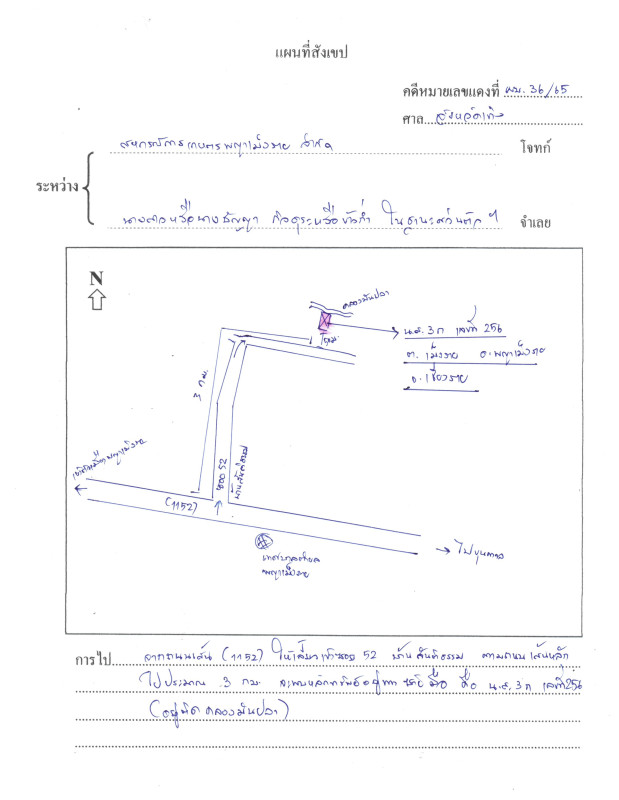 แผนที่สังเขป
คดีหมายเลขแดงที่ ผบ. 36/65
ศาล
สหกรณ์การเกษตรพญาเม็งราย จำกัด โจทก์
ระหว่าง
นางดาวหรือนางธัญญา หรือขัวก่ำ ในฐานะส่วนตัวฯ จำเลย
N
คลองมันปลา
น.ส. 3 ก เลขที่ 256
ต. เม็งราย อ. พญาเม็งราย
จ. เชียงราย
3 กม.
ซอย 52
บ้านสันติธรรม
(1152)
ไปขุนตาล
เทศบาลตำบล
พญาเม็งราย
การไป จากถนนเส้น (1152) ให้เลี้ยวเข้าซอย 52 บ้านสันติธรรม ตามถนนเส้นหลัก
ไปประมาณ 3 กม. จะพบหลักทรัพย์อยู่ทางซ้ายมือ คือ น.ส. 3 ก เลขที่ 256
(อยู่ติดคลองมันปลา)